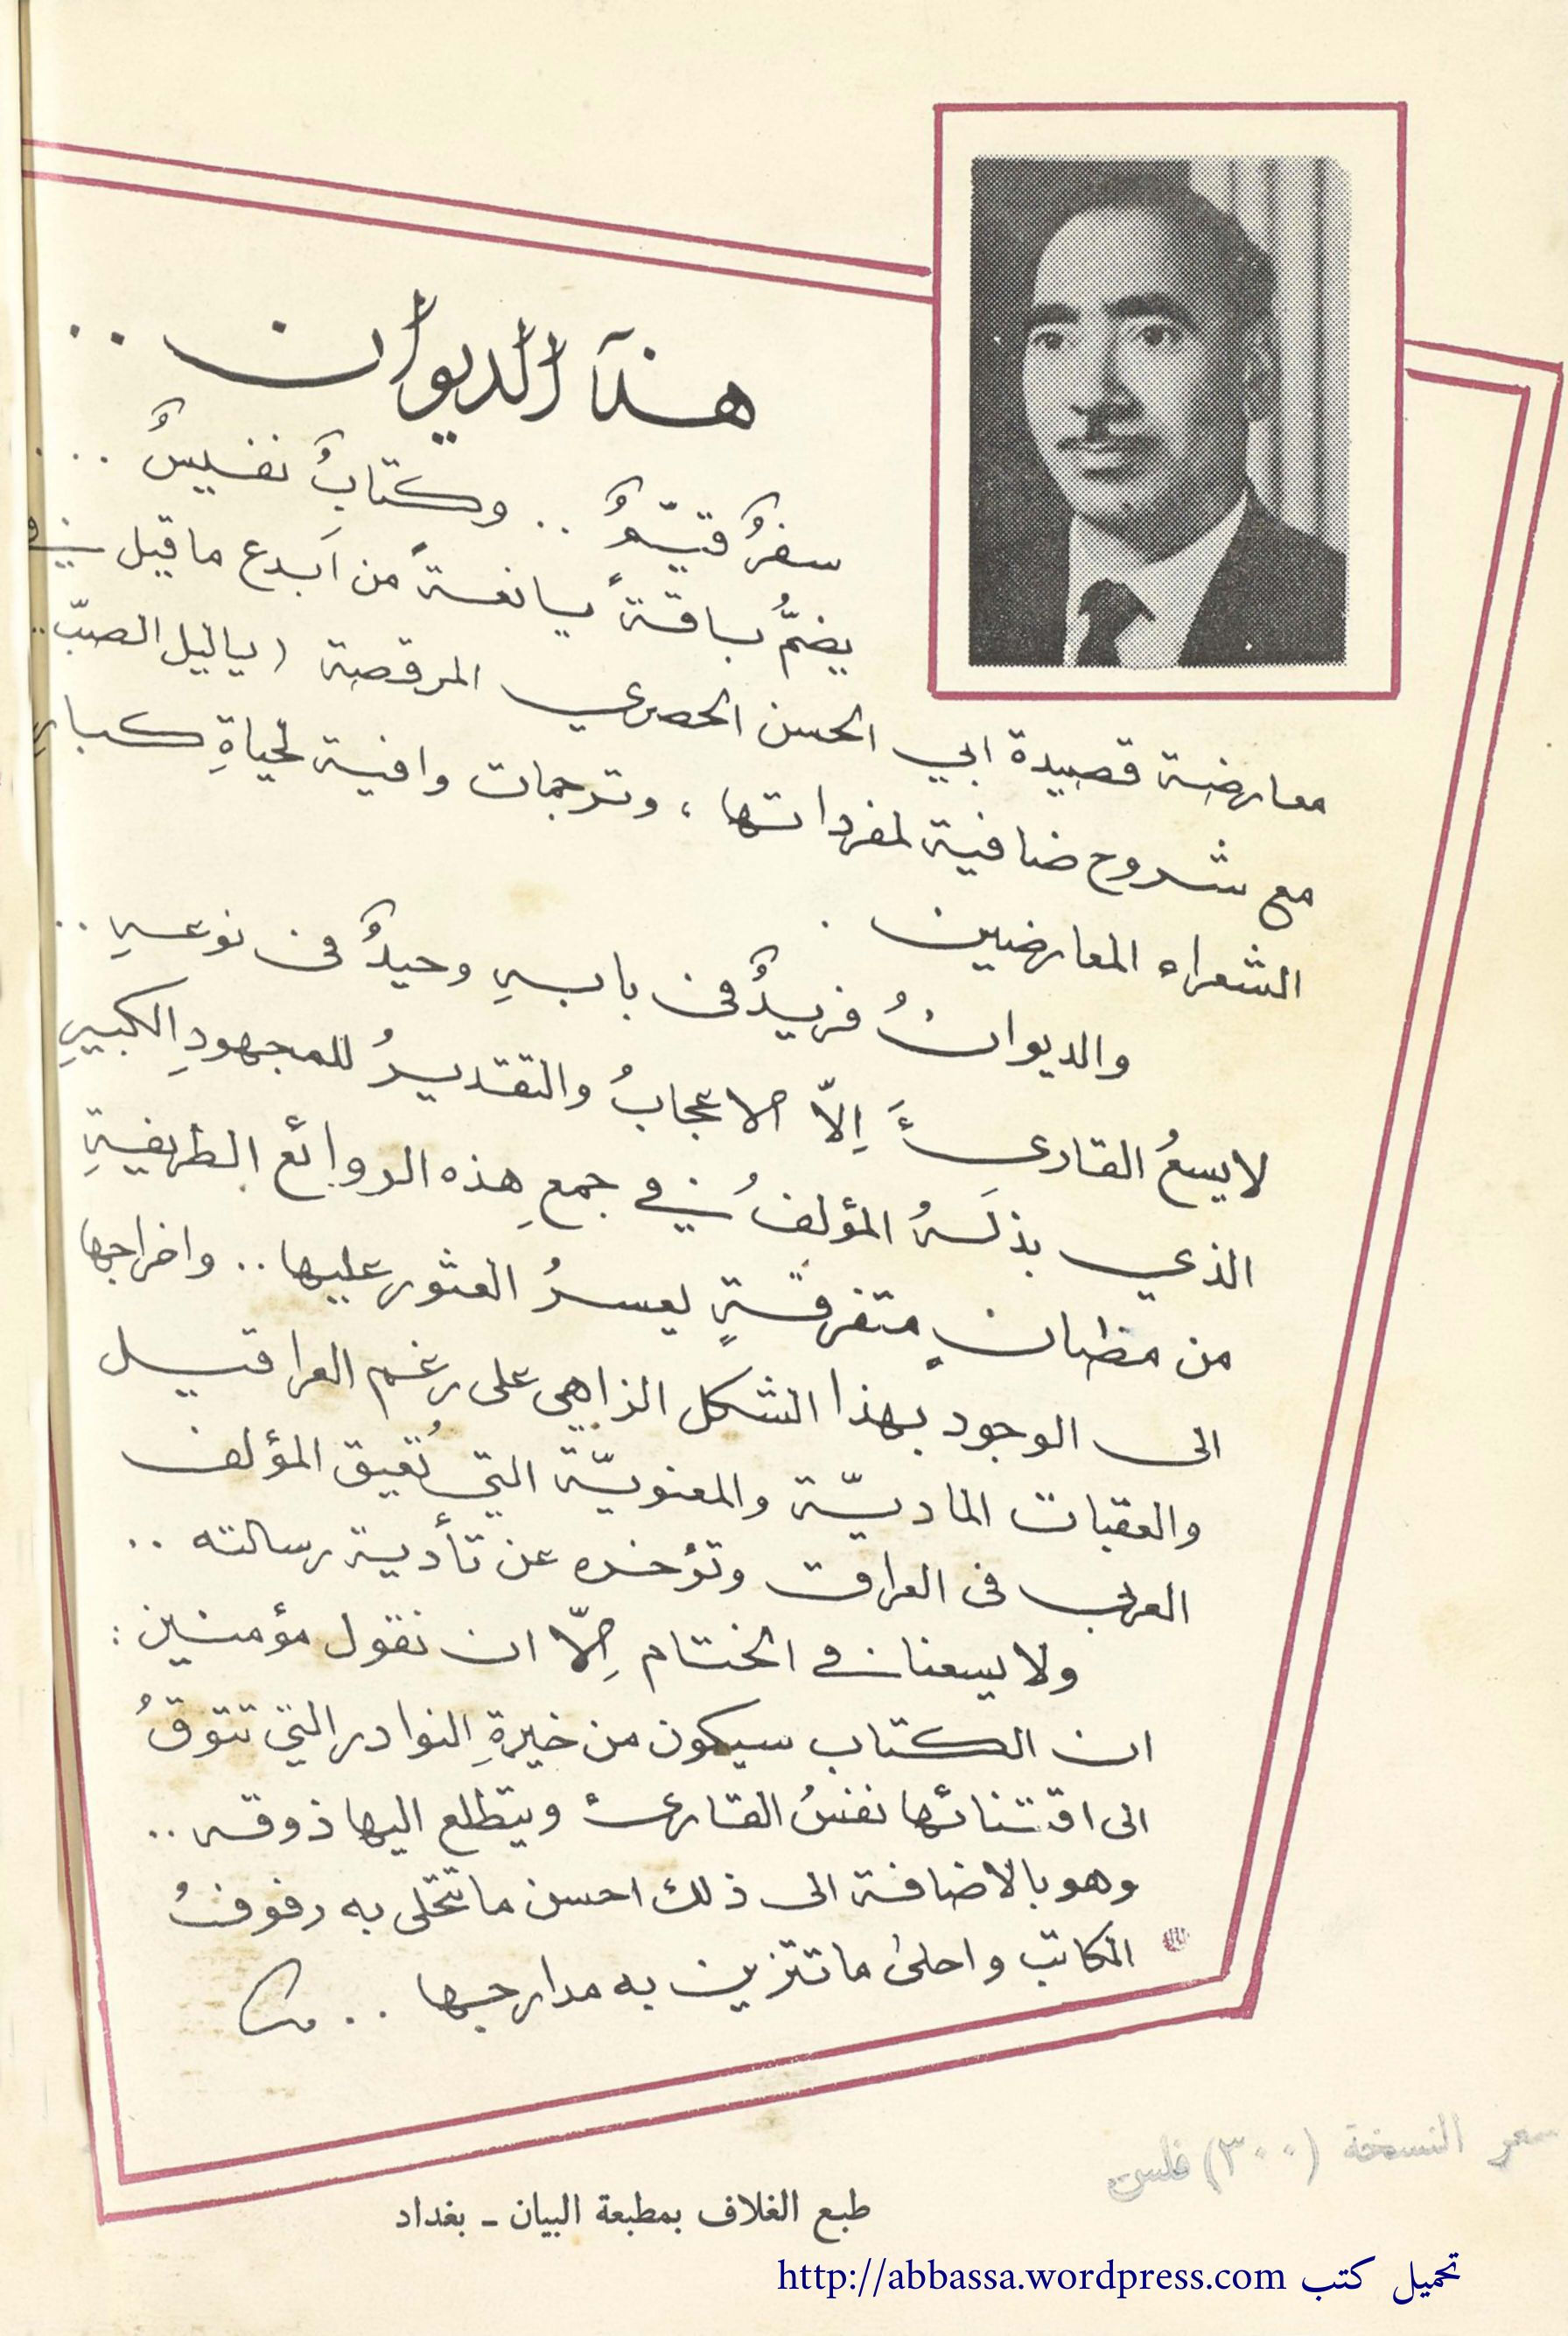 هذا الديوان ..
سفرٌ قيّمٌ .. وكتابٌ نفيسٌ ..
يضمُّ باقةً يانعةً من أبدع ما قيل في
معارضة قصيدة ابي الحسن الحصري المرقصة (ياليل الصبّ ..
مع شروح ضافية لمفرداتها ، وترجمات وافية لحياةِ كبارِ
الشعراء المعارضين .
والديوانُ فريدٌ في بابهِ وحيدٌ في نوعهِ ..
لا يسعُ القارئَ إِلاّ الاعجابُ والتقديرُ للمجهودِ الكبيرِ
الذي بذلَهُ المؤلفُ في جمعِ هذه الروائع الطريفةِ
من مظانٍ متفرقةٍ يعسرُ العثور عليها .. واخراجها
الى الوجود بهذا الشكل الزاهي على رغم العراقيل
والعقبات الماديّة والمعنويّة التي تُعيق المؤلف
العربي في العراق وتؤخره عن تأدية رسالته ..
ولا يسعنا في الختام إِلاّ ان نقول مؤمنين :
ان الكتاب سيكون من خيرةِ النوادر التي تتوقُ
الى اقتنائها نفسُ القارئ ويتطلع اليها ذوقه ..
وهو بالاضافة الى ذلك احسن ما تتحلى به رفوفُ
المكاتب واحلى ما تتزين به مدارجها ..
سعر النسخة (٣٠٠) فلس
طبع الغلاف بمطبعة البيان - بغداد
تحميل كتب http://abbassa.wordpress.com